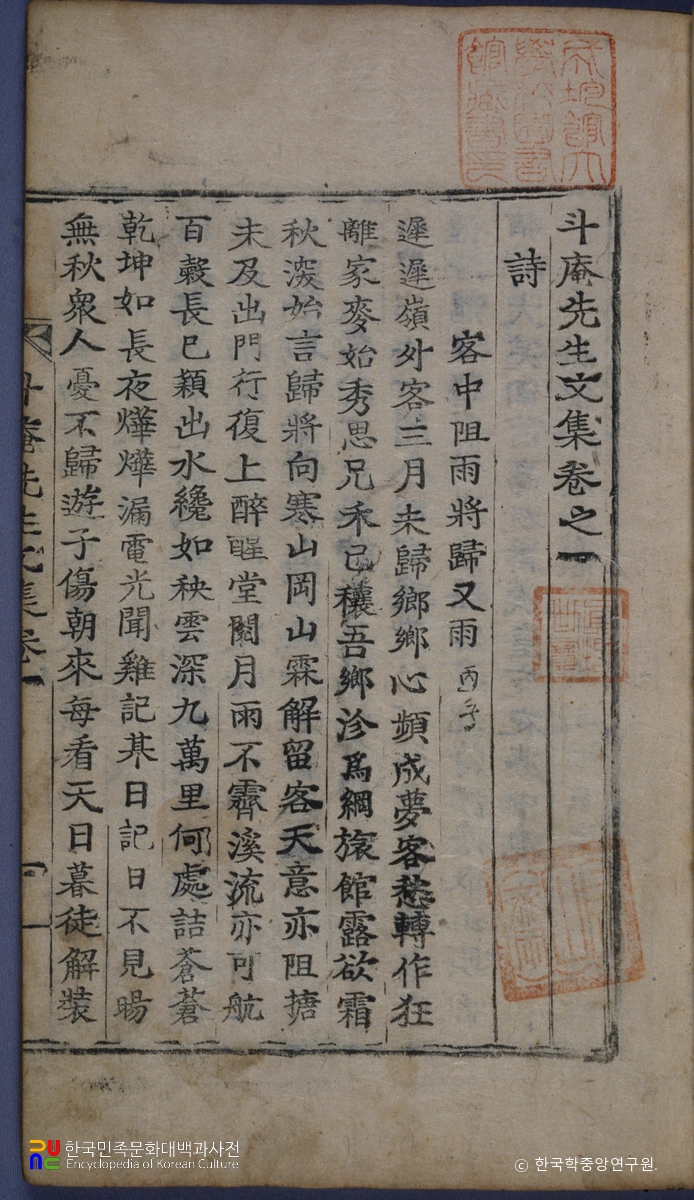 成均館大
學校圖書
館藏書
斗庵先生文集卷之一
詩
客中阻雨將歸又雨 丙
遲遲嶺外客三月未歸鄉鄉心頻成夢客愁轉作狂
離家麥始秀思兄禾已穰吾鄉沴爲綱旅館露欲霜
秋深始言歸將向寒山岡山霖解留客天意亦阻搪
未及出門行復上醉醒堂月雨不霽溪流亦可航
百穀長已穎出水纔如秧雲深九萬里何處詰蒼蒼
乾坤如長夜燁燁漏電光聞雞記其日記日不見暘
無秋衆人憂不歸遊子傷朝來每看天日暮徒解裝
斗庵先生文集卷一 一
한국민족문화대백과사전
Encyclopedia of Korean Culture
ⓒ 한국학중앙연구원.